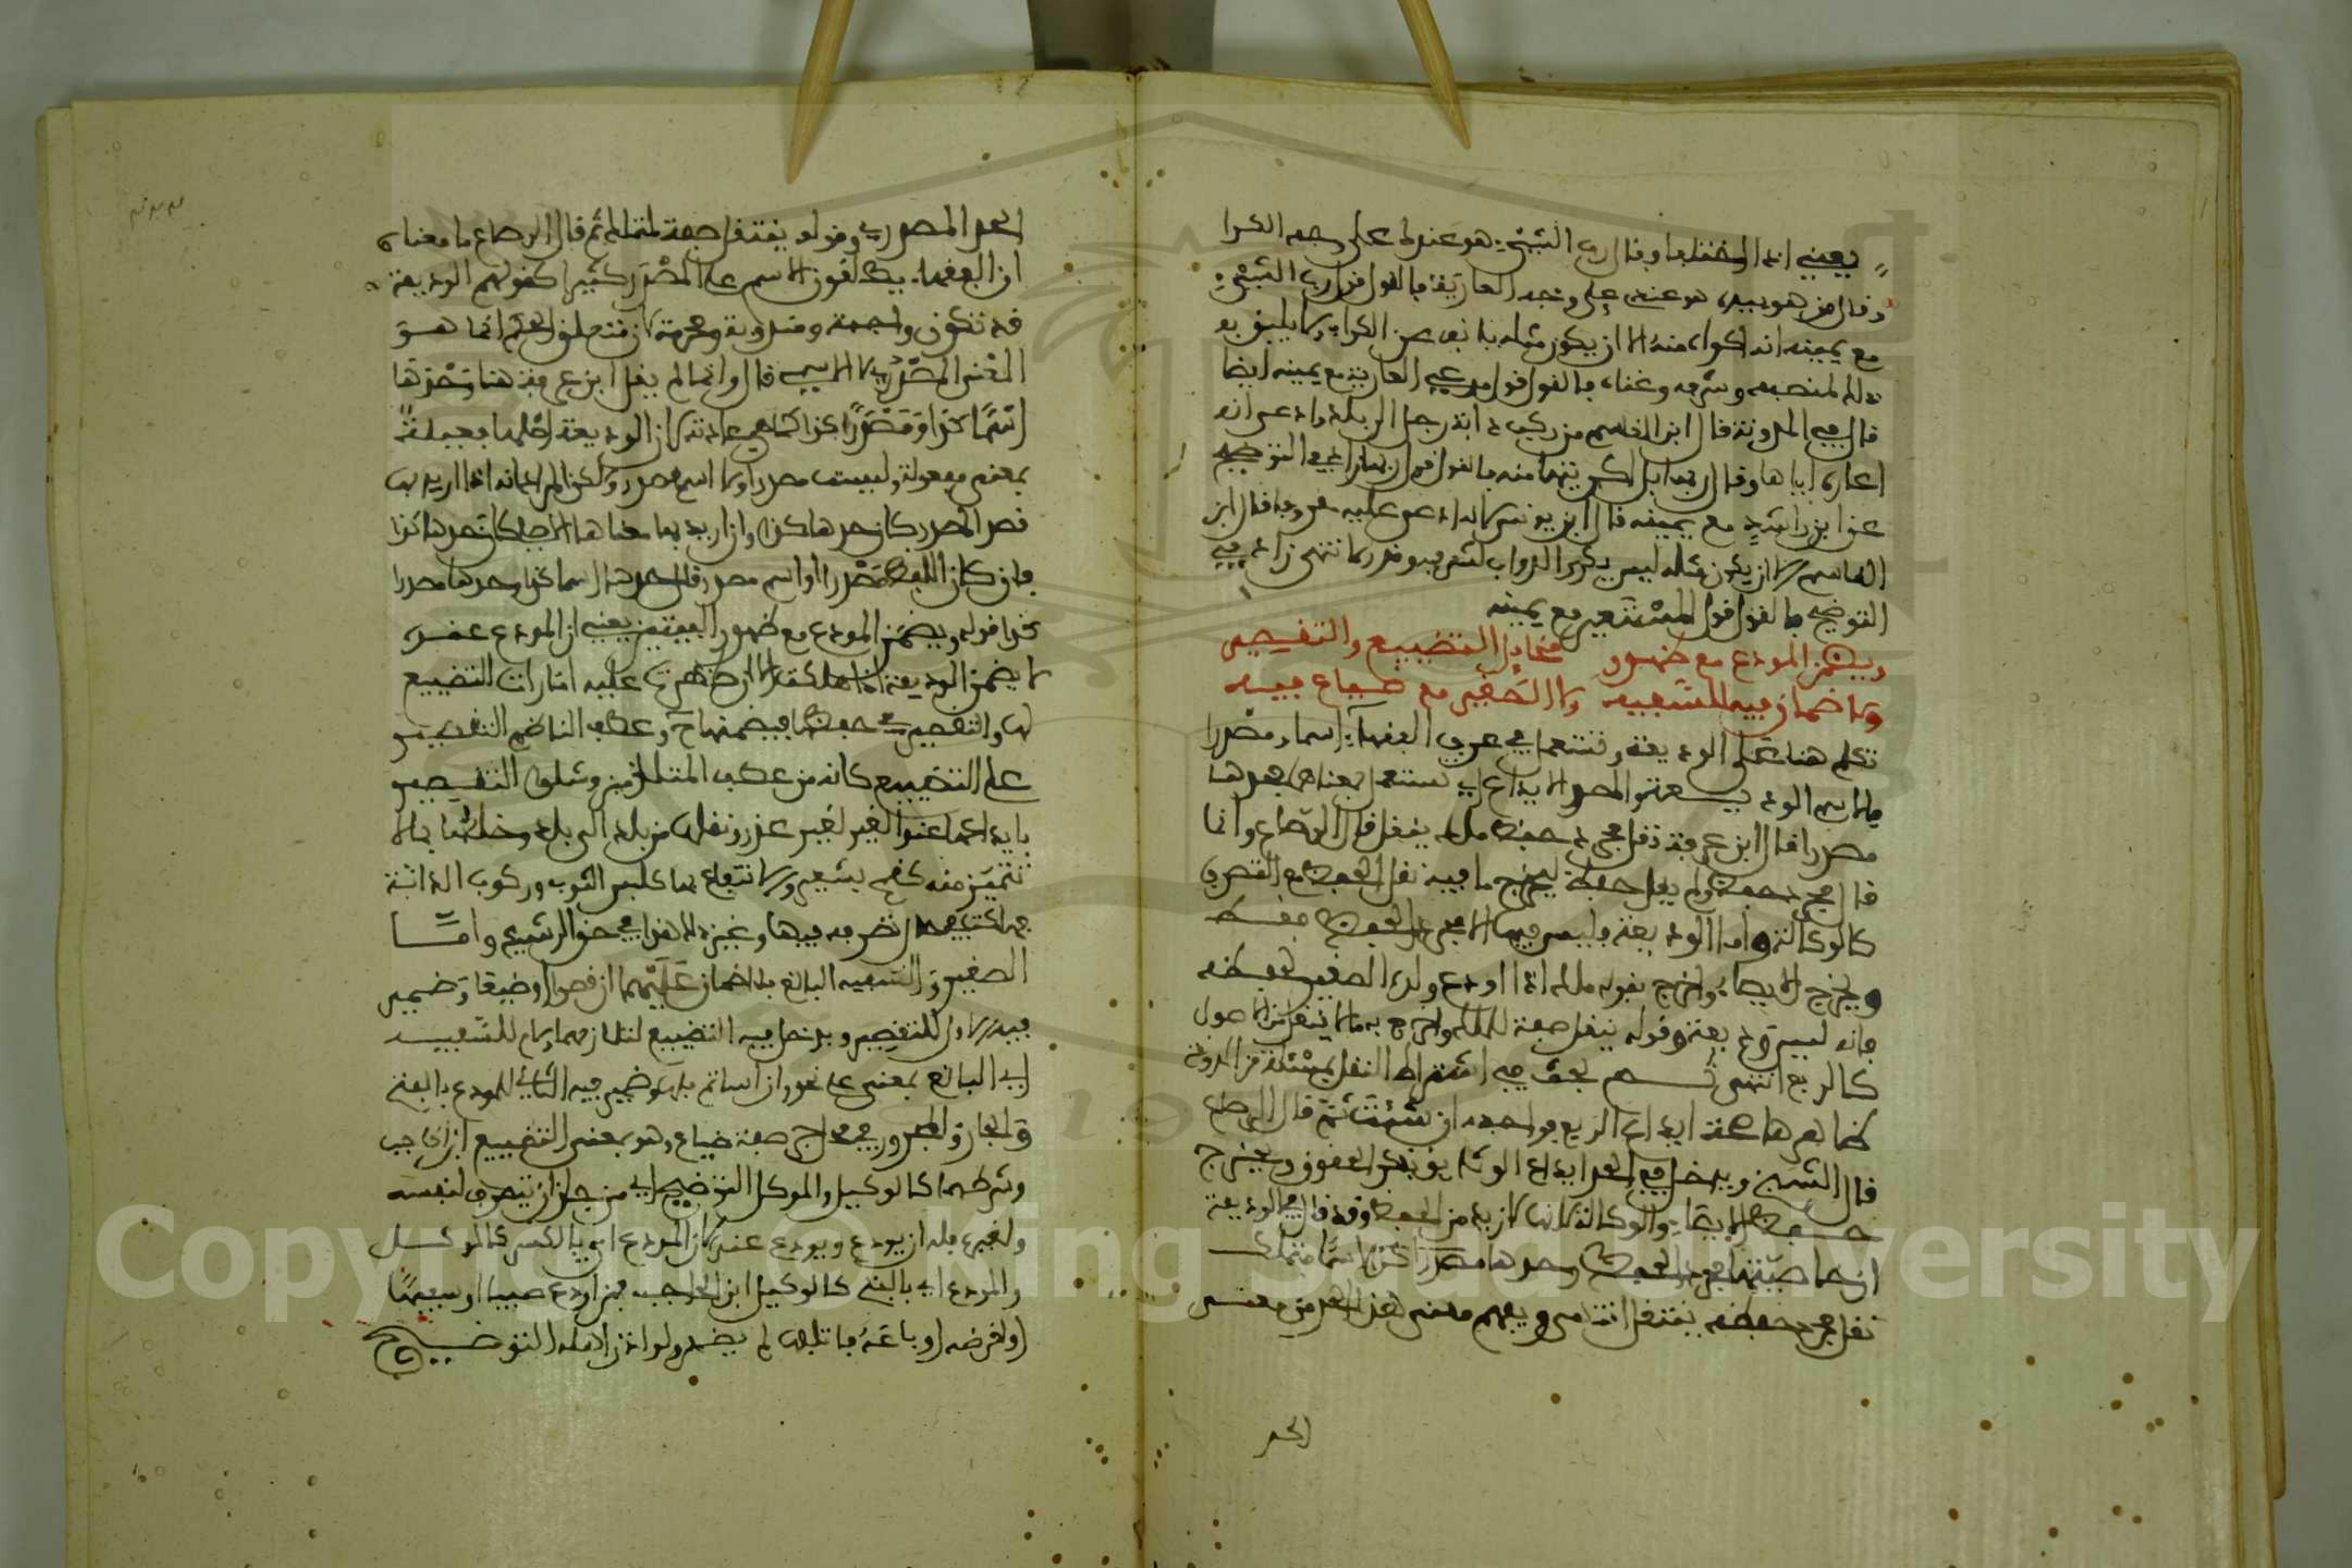 يعني اذا اختلفا وقال رب الشيء هو عندك على وجه الكرا
وقال من هو بيده هو عندي على وجه العارية فالقول قول رب الشيء
مع يمينه انه اكراه منه الا ان يكون مثله يانف من الكراء ولا يليق به
ذلك لمنصبه وشرفه وغناه فالقول قول مدعي العارية مع يمينه ايضا
قال في المدونة قال ابن القاسم من ركب دابة رجل الى بلد وادعى انه
اعاره اياها وقال ربها بل اكريتها منه فالقول قول ربها زاد في التوضيح
عن ابن راشد مع يمينه قال ابن يونس لانه ادعى عليه معروفا قال ابن
القاسم الا ان يكون مثله ليس يكري الدواب لشرفه وقدره انتهى زاد في
التوضيح فالقول قول المستعير مع يمينه
ويضمن المودع مع ظهور مخايل التضييع والتقصير
ولا ضمان فيه للسفيه ولا الصغير مع ضياع فيه
تكلم هنا على الوديعة وتستعمل في عرف الفقهاء اسما ومصدرا
مصدرا قال ابن عرفة نقل مجرد حفظ ملك ينقل قال الرصاع وانما
قال مجرد حفظ ولم يقل حفظ ليخرج ما فيه نقل الحفظ مع التصرف
كالوكالة واما الوديعة وليس فيها الا مجرد الحفظ فقط
ويخرج الايصاء واخرج بقوله ملك اذا اودع ولده الصغير لحفظه
فانه ليس وديعة وقوله ينقل صفة للملك واخرج به ما لا ينقل من الاصول
كالربع انتهى ثم بحث في اشتراط النقل بمسئلة من المدونة
ظاهرها صحة ايداع الربع فواجعه ان شئت ثم قال الرصاع
قال الشيخ ويدخل في الحد ايداع الوثائق بذكر الحقوق ويخرج
حفظ الايصاء والوكالة لانها لازيد من الحفظ وقد قال في الوديعة
ان خاصيتها مجرد الحفظ وحدها مصدرا كذا اسما متملك
نقل مجرد حفظه ينتقل انتهى ويفهم معنى هذا الحد من معنى
الحد
الحد المصدري وقوله ينتقل صفة لمتملك ثم قال الرصاع ما معناه
ان الفقهاء يطلقون الاسم على المصدر كثيرا كقولهم الوديعة
قد تكون واجبة ومندوبة ومحرمة لان متعلق الحكم انما هو
المعنى المصدري لا الاسمي قال وانما لم يقل ابن عرفة هنا وحدها
اسما كذا ومصدرا كذا كما هي عادته لان الوديعة اصلها فعيلة
بمعنى مفعولة وليست مصدرا ولا اسم مصدر ولكن المراعاة اذا اريد بها
قصد المصدر كان حدها كذا وان اريد بها معناها الاصلي كان حدها كذا
فان كان اللفظ مصدرا او اسم مصدر قال حدها اسما كذا وحدها مصدرا
كذا قوله ويضمن المودع مع ظهور البيتين يعني ان المودع عنده
لا يضمن الوديعة اذا هلكت الا ان ظهرت عليه امارات التضييع
لها والتقصير في حفظها فيضمنها ح وعطف الناظم التقصير
على التضييع كانه من عطف المتلازمين ومثلوا التقصير
بايداعها عند الغير لغير عذر ونقلها من بلد الى بلد وخلطها بما لا
تتميز منه كقمح بشعير ولا انتفاع بها كلبس الثوب وركوب الدابة
تصرفه فيها وغير ذلك هذا في حق الرشيد واما
الصغير والسفيه البالغ فلا ضمان عليهما ان قصرا وضيعا وضمير
فيه الاول للتقصير ويدخل فيه التضييع لتلازمهما ولام للسفيه
اي البالغ بمعنى على نحو وان اساتم فلها وضمير فيه الثاني للمودع بالفتح
والجار والمجرور في محل صفة ضياع وهو بمعنى التضييع ابن الحاجب
وشرطهما كالوكيل والموكل التوضيح اي من جاز ان يتصرف لنفسه
ولغيره فله ان يودع ويودع عنده لان المودع اي بالكسر كالموكل
والمودع اي بالفتح كالوكيل ابن الحاجب فمن اودع صبيا او سفيها
او اقرضه او باعه فاتلف لم يضمن ولو اذن له اهله التوضيح